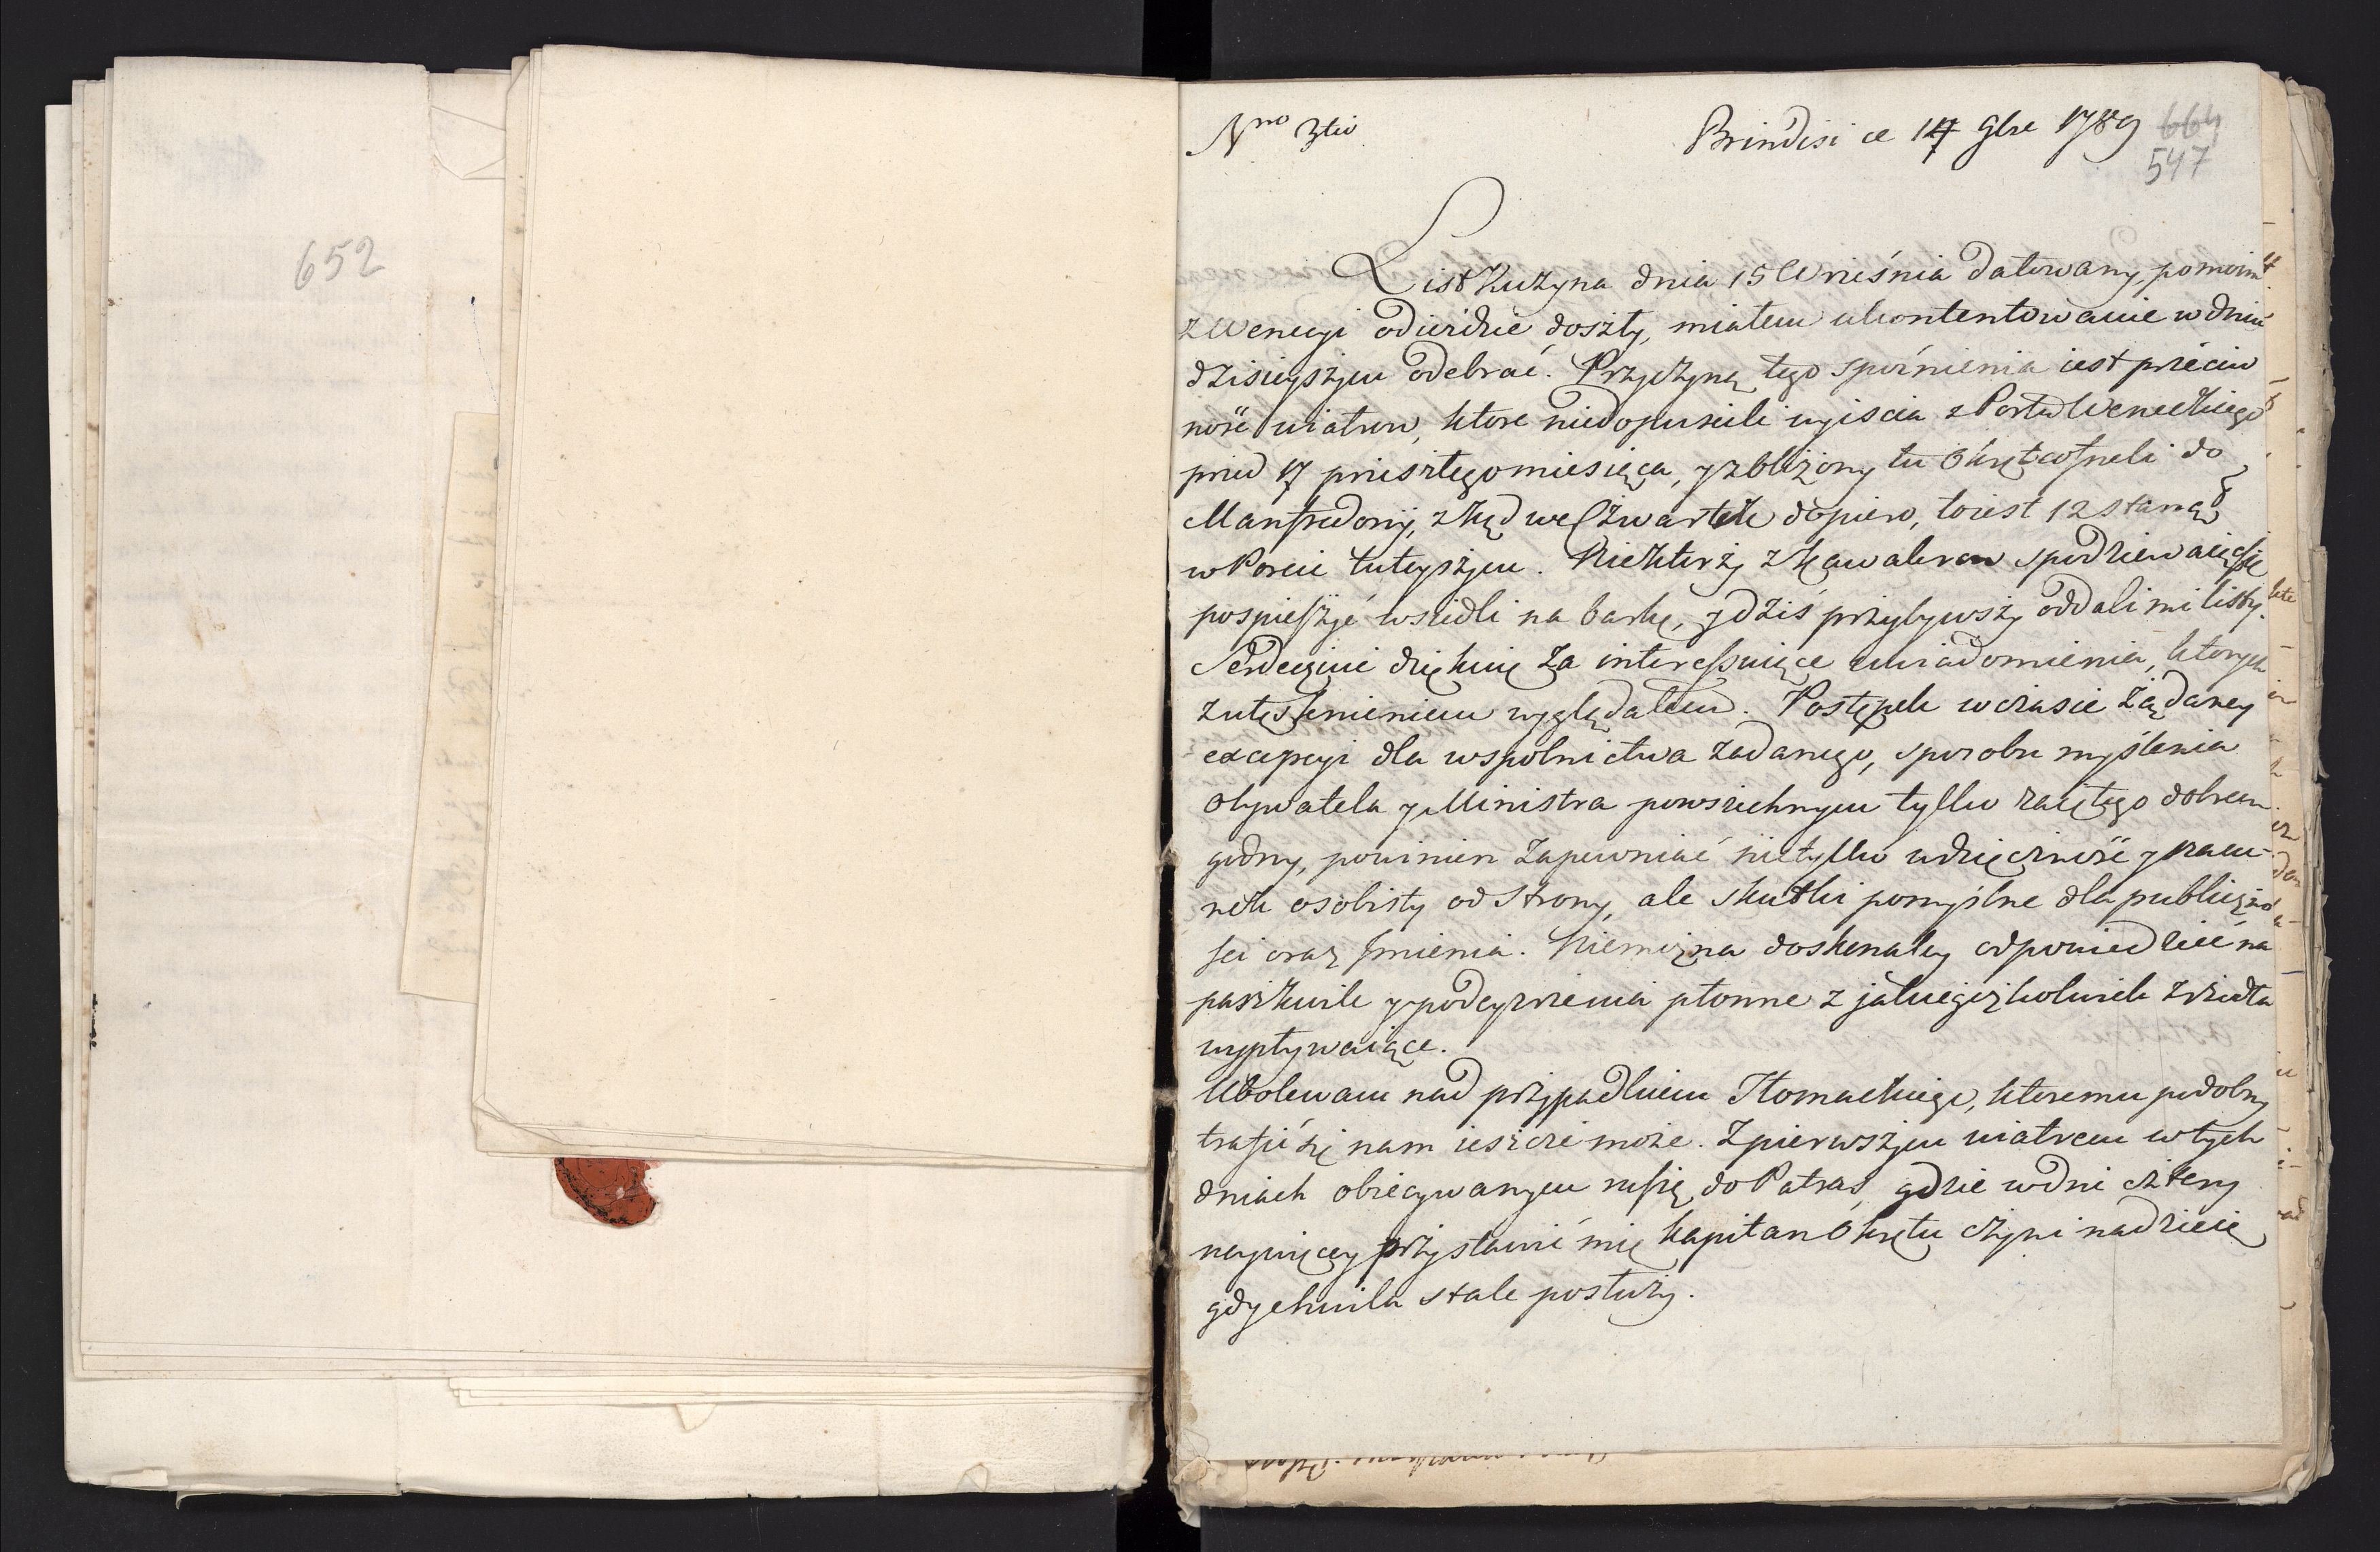 652
Nro 3tio
Brindisi ce 14 9bre 1789
664
547
List Kuzyna dnia 15 Września datowany, po moim
z Wenecyi odieździe doszły, miałem ukontentowanie w dniu
dzisieyszym odebrać. Przyczyną tego spoźnienia iest przeciw
ność wiatrow, ktore niedopuscili wyiscia z Portu Weneckiego
przed 17 przeszłego miesiąca, y zbliżony tu Okręt cofneli do
Manfredonij, zkąd we Czwartek dopiero, toiest 12 staną
w Porcie tuteyszym. Niektorzy z Kawalerow spodziewaiąc się
pospieszyć wsiedli na barkę, y dziś przybywszy oddali mi listy.
Serdecznie dziękuię za interessuiące uwiadomienia, ktorych
z utęsknieniem wyglądałem. Postępek w czasie żądaney
excepcyi dla wspolnictwa zadanego, sposobu myślenia
obywatela y Ministra powszechnym tylko zaiętego dobrem
godny, powinien zapewniać nietylko wdzięczność y szacu-
nek osobisty od strony, ale skutki pomyślne dla publiczno
ści oraz imienia. Niemożna doskonaley odpowiedzieć na
paszkwile y podeyrzenia płonne z jakiegożkolwiek źrzodła
wypływaiące.
Ubolewam nad przypadkiem Tłomackiego, ktoremu podobny
trafić się nam ieszcze może. Z pierwszym wiatrem w tych
dniach obiecywanym ruszę do Patras, gdzie w dni cztery
naywięcey przystawić mię Kapitan Okrętu czyni nadzieię
gdy chwila stale posłuży.